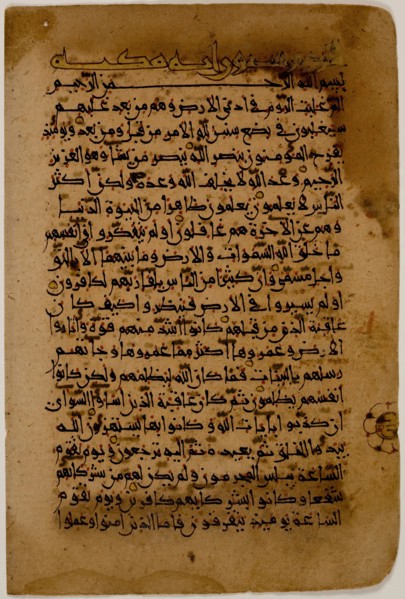 اية مكية
بسم الله الرحمن الرحيم
الم غلبت الروم في ادني الارض وهم من بعد غلبهم
سيغلبون في بضع سنين لله الامر من قبل ومن بعد ويومئذ
يفرح المومنون بنصر الله ينصر من يشا وهو العزيز
الرحيم وعد الله لا يخلف الله وعده ولكن اكثر
الناس لا يعلمون يعلمون ظاهرا من الحيوة الدنيا
وهم عن الاخرة هم غافلون اولم يتفكروا في انفسهم
ما خلق الله السموات والارض وما بينهما الا بالحق
واجل مسمى وان كثيرا من الناس بلقاى ربهم لكافرون
اولم يسيروا في الارض فينظروا كيف كان
عاقبة الذين من قبلهم كانوا اشد منهم قوة واثاروا
الارض وعمروها اكثر مما عمروها وجاتهم
رسلهم بالبينات فما كان الله ليظلمهم ولكن كانوا
انفسهم يظلمون ثم كان عاقبة الذين اساوا السواى
ان كذبوا بايات الله وكانوا بها يستهزون الله
يبدوا الخلق ثم يعيده ثم اليه ترجعون ويوم تقوم
الساعة يبلس المجرمون ولم يكن لهم من شركائهم
شفعوا وكانوا بشركائهم كافرين ويوم تقوم
الساعة يومئذ يتفرقون فاما الذين امنوا وعملوا